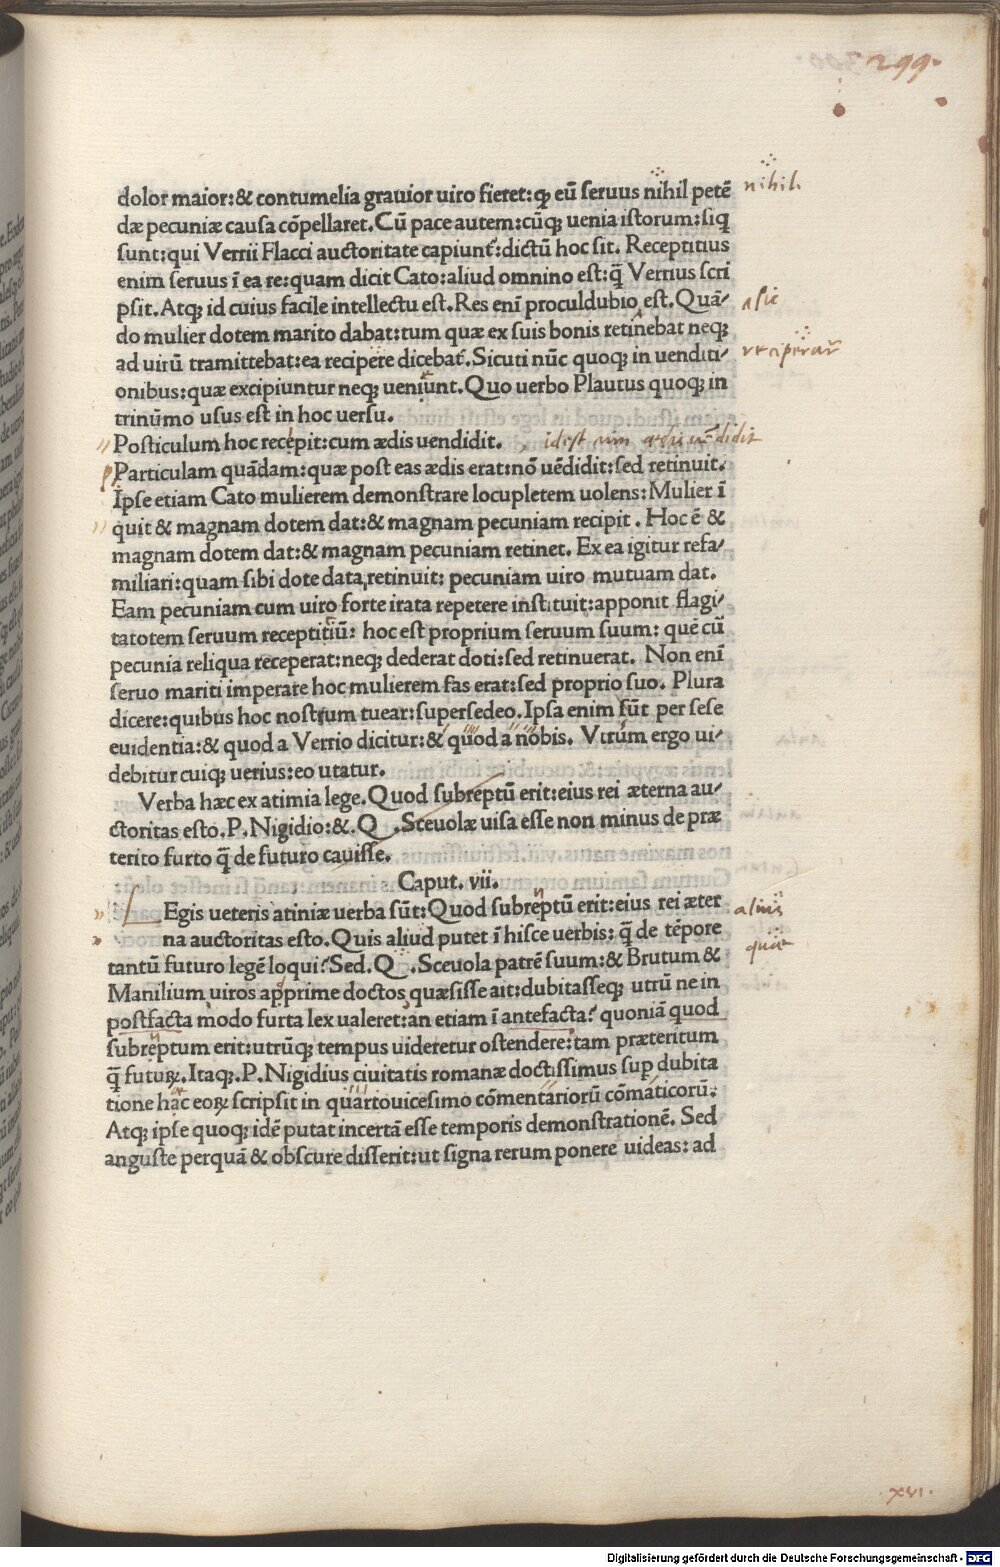 299.
dolor maior:& contumelia grauior uiro fieret:ꝙ eũ seruus nihil petẽ
nihil.
dæ pecuniæ causa cõpellaret.Cũ pace autem:cũꝗ uenia istorum:siq
sunt:qui Verrii Flacci auctoritate capiunt᷑:dictũ hoc sit. Receptitius
enim seruus ĩ ea re:quam dicit Cato:aliud omnino est:q̃ Verrius scri
psit.Atqꝫ id cuius facile intellectu est.Res enĩ proculdubio est.Quã/
do mulier dotem marito dabat:tum quæ ex suis bonis retinebat neqꝫ
ad uirũ tramittebat:ea recipere dicebat᷑.Sicuti nũc quoqꝫ in uenditi/
onibus:quæ excipiuntur neqꝫ ueniunt.Quo uerbo Plautus quoqꝫ in
trinũmo usus est in hoc uersu.
Posticulum hoc recepit:cum ædis uendidit.
Particulam quãdam:quæ post eas ædis erat:nõ uẽdidit:sed retinuit.
Ipse etiam Cato mulierem demonstrare locupletem uolens:Mulier ĩ
quit & magnam dotem dat:& magnam pecuniam recipit. Hoc ẽ &
magnam dotem dat:& magnam pecuniam retinet. Ex ea igitur refa/
miliari:quam sibi dote data retinuit: pecuniam uiro mutuam dat.
Eam pecuniam cum uiro forte irata repetere instituit:apponit flagi/
tatotem seruum receptitiũ: hoc est proprium seruum suum: quẽ cũ
pecunia reliqua receperat:neqꝫ dederat doti:sed retinuerat. Non enĩ
seruo mariti imperare hoc mulierem fas erat:sed proprio suo. Plura
dicere:quibus hoc nostrum tuear:supersedeo.Ipsa enim sũt per sese
euidentia:& quod a Verrio dicitur:& quod a nobis. Vtrũm ergo ui/
debitur cuiqꝫ uerius:eo utatur.
Verba hæc ex atimia lege.Quod subreptũ erit:eius rei æterna au/
ctoritas esto.P.Nigidio:&.Q .Sceuolæ uisa esse non minus de præ
terito furto q̃ de futuro cauisse.
Caput. vii.
L Egis ueteris atiniæ uerba sũt:Quod subreptũ erit:eius rei æter
na auctoritas esto.Quis aliud putet ĩ hisce uerbis: q̃ de tẽpore
tantũ futuro legẽ loqui?Sed.Q .Sceuola patrẽ suum:& Brutum &
Manilium uiros apprime doctos quæsisse ait:dubitasseqꝫ utrũ ne in
postfacta modo furta lex ualeret:an etiam ĩ antefacta? quoniã quod
subreptum erit:utrũqꝫ tempus uideretur ostendere:tam præteritum
q̃ futuꝝ.Itaqꝫ.P.Nigidius ciuitatis romanæ doctissimus sup dubita
tione hac eoꝝ scripsit in quartouicesimo cõmentariorũ cõmaticorũ:
Atqꝫ ipse quoqꝫ idẽ putat incertã esse temporis demonstrationẽ. Sed
anguste perquã & obscure disserit:ut signa rerum ponere uideas: ad
alius
xvi.
Digitalisierung gefördert durch die Deutsche Forschungsgemeinschaft - DFG